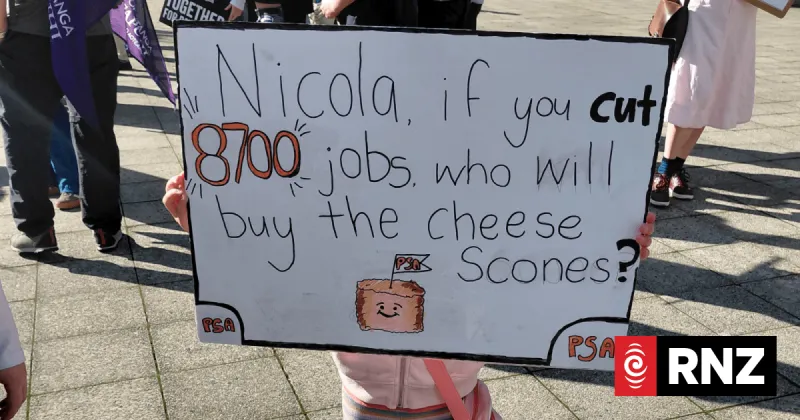 TOGETHER
Nicola, if you cut
8700 jobs, who will
buy the cheese
Scones?
PSA
PSA
PSA
RNZ